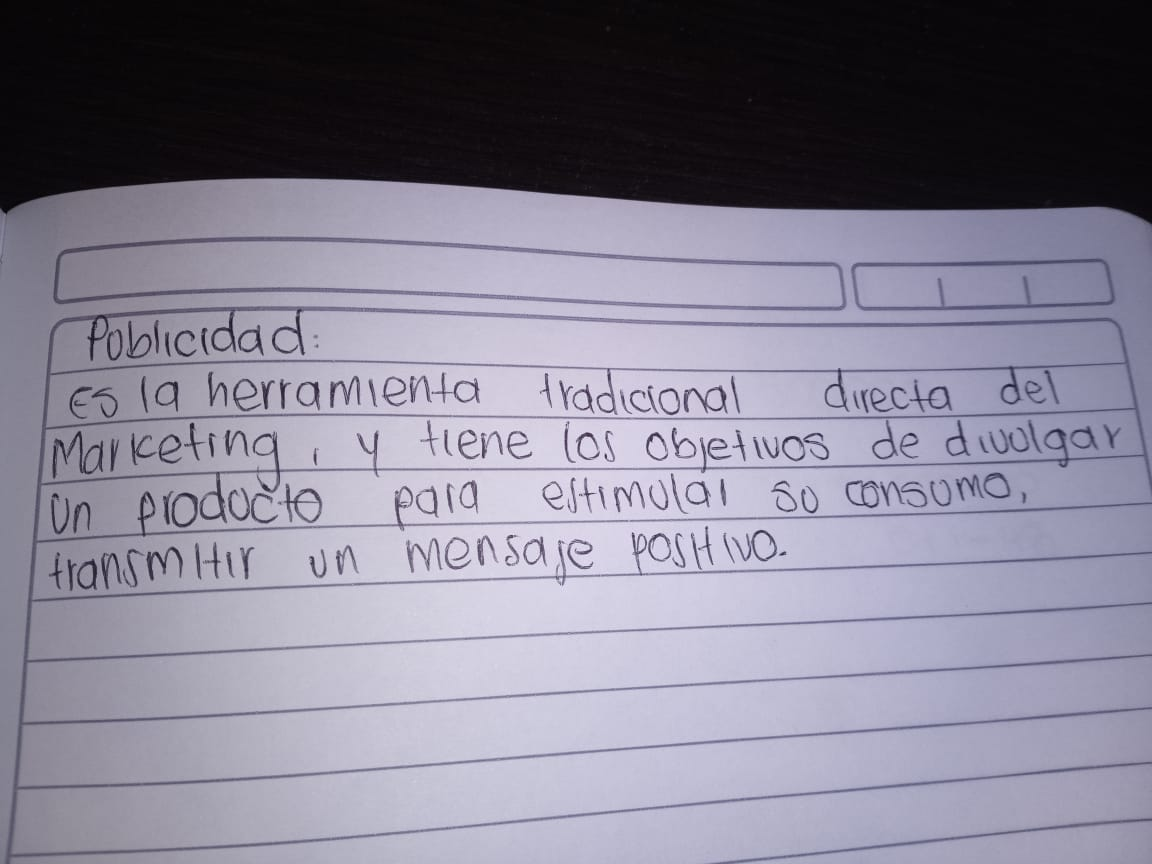 Publicidad:
Es la herramienta tradicional directa del
Marketing, y tiene los objetivos de divulgar
un producto para estimular su consumo,
transmitir un mensaje positivo.